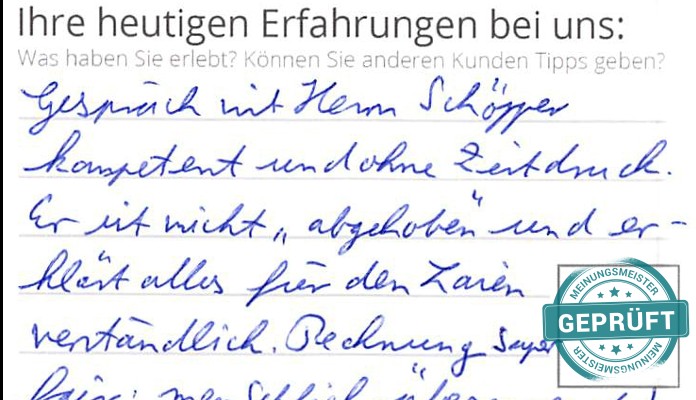 Ihre heutigen Erfahrungen bei uns:
Was haben Sie erlebt? Können Sie anderen Kunden Tipps geben?
Gespräch mit Herrn Schöpper
kompetent und ohne Zeitdruck.
Er ist nicht „abgehoben“ und er-
klärt alles für den Laien
verständlich. Rechnung super
MEINUNGSMEISTER
GEPRÜFT
MEINUNGSMEISTER